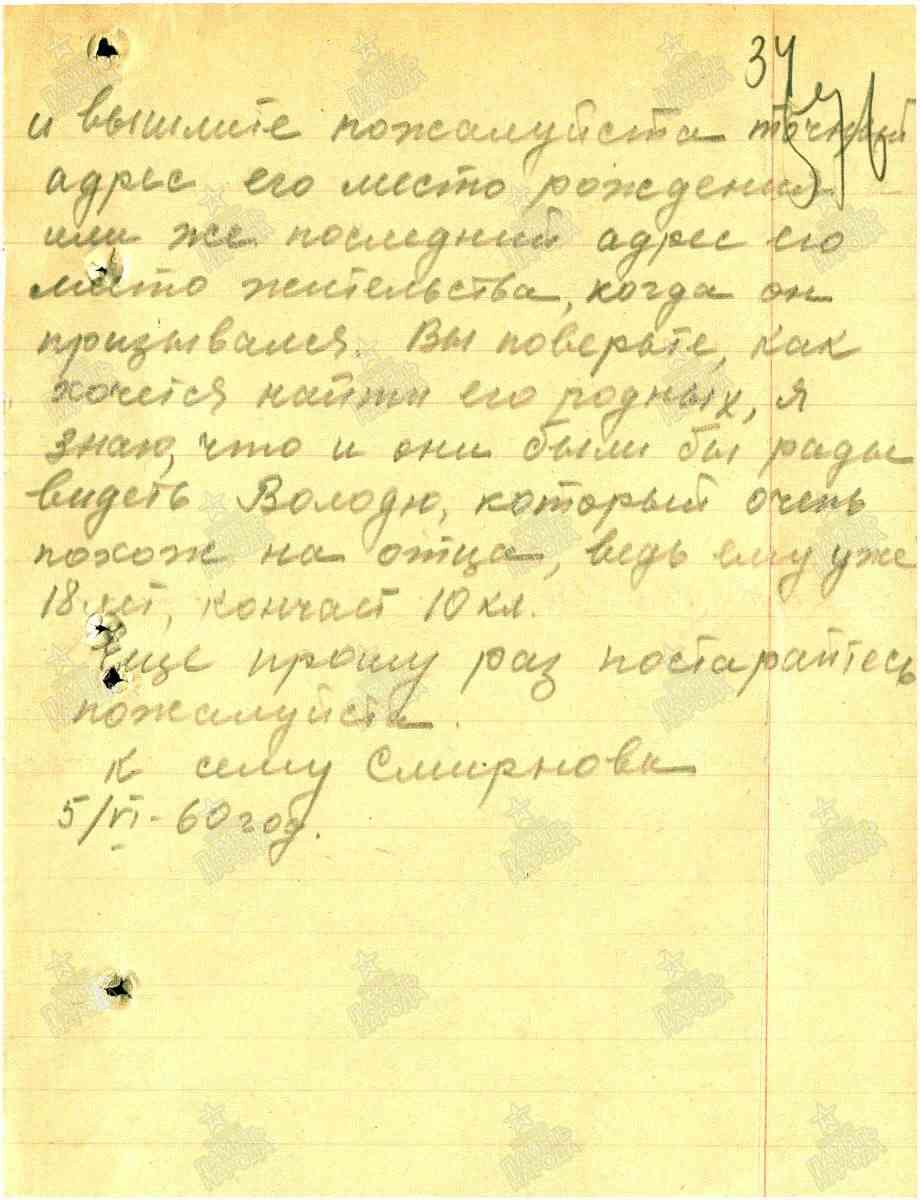 34
и вышлите пожалуйста точный
адрес его место рождения
или же последний адрес его
место жительства, когда он
призывался. Вы поверьте, как
хочется найти его родных, я
знаю, что и они были бы рады
видеть Володю, который очень
похож на отца, ведь ему уже
18 лет, кончает 10 кл.
Еще прошу раз постарайтесь
пожалуйста.
К сему Смирнова
5/VI - 60 год.